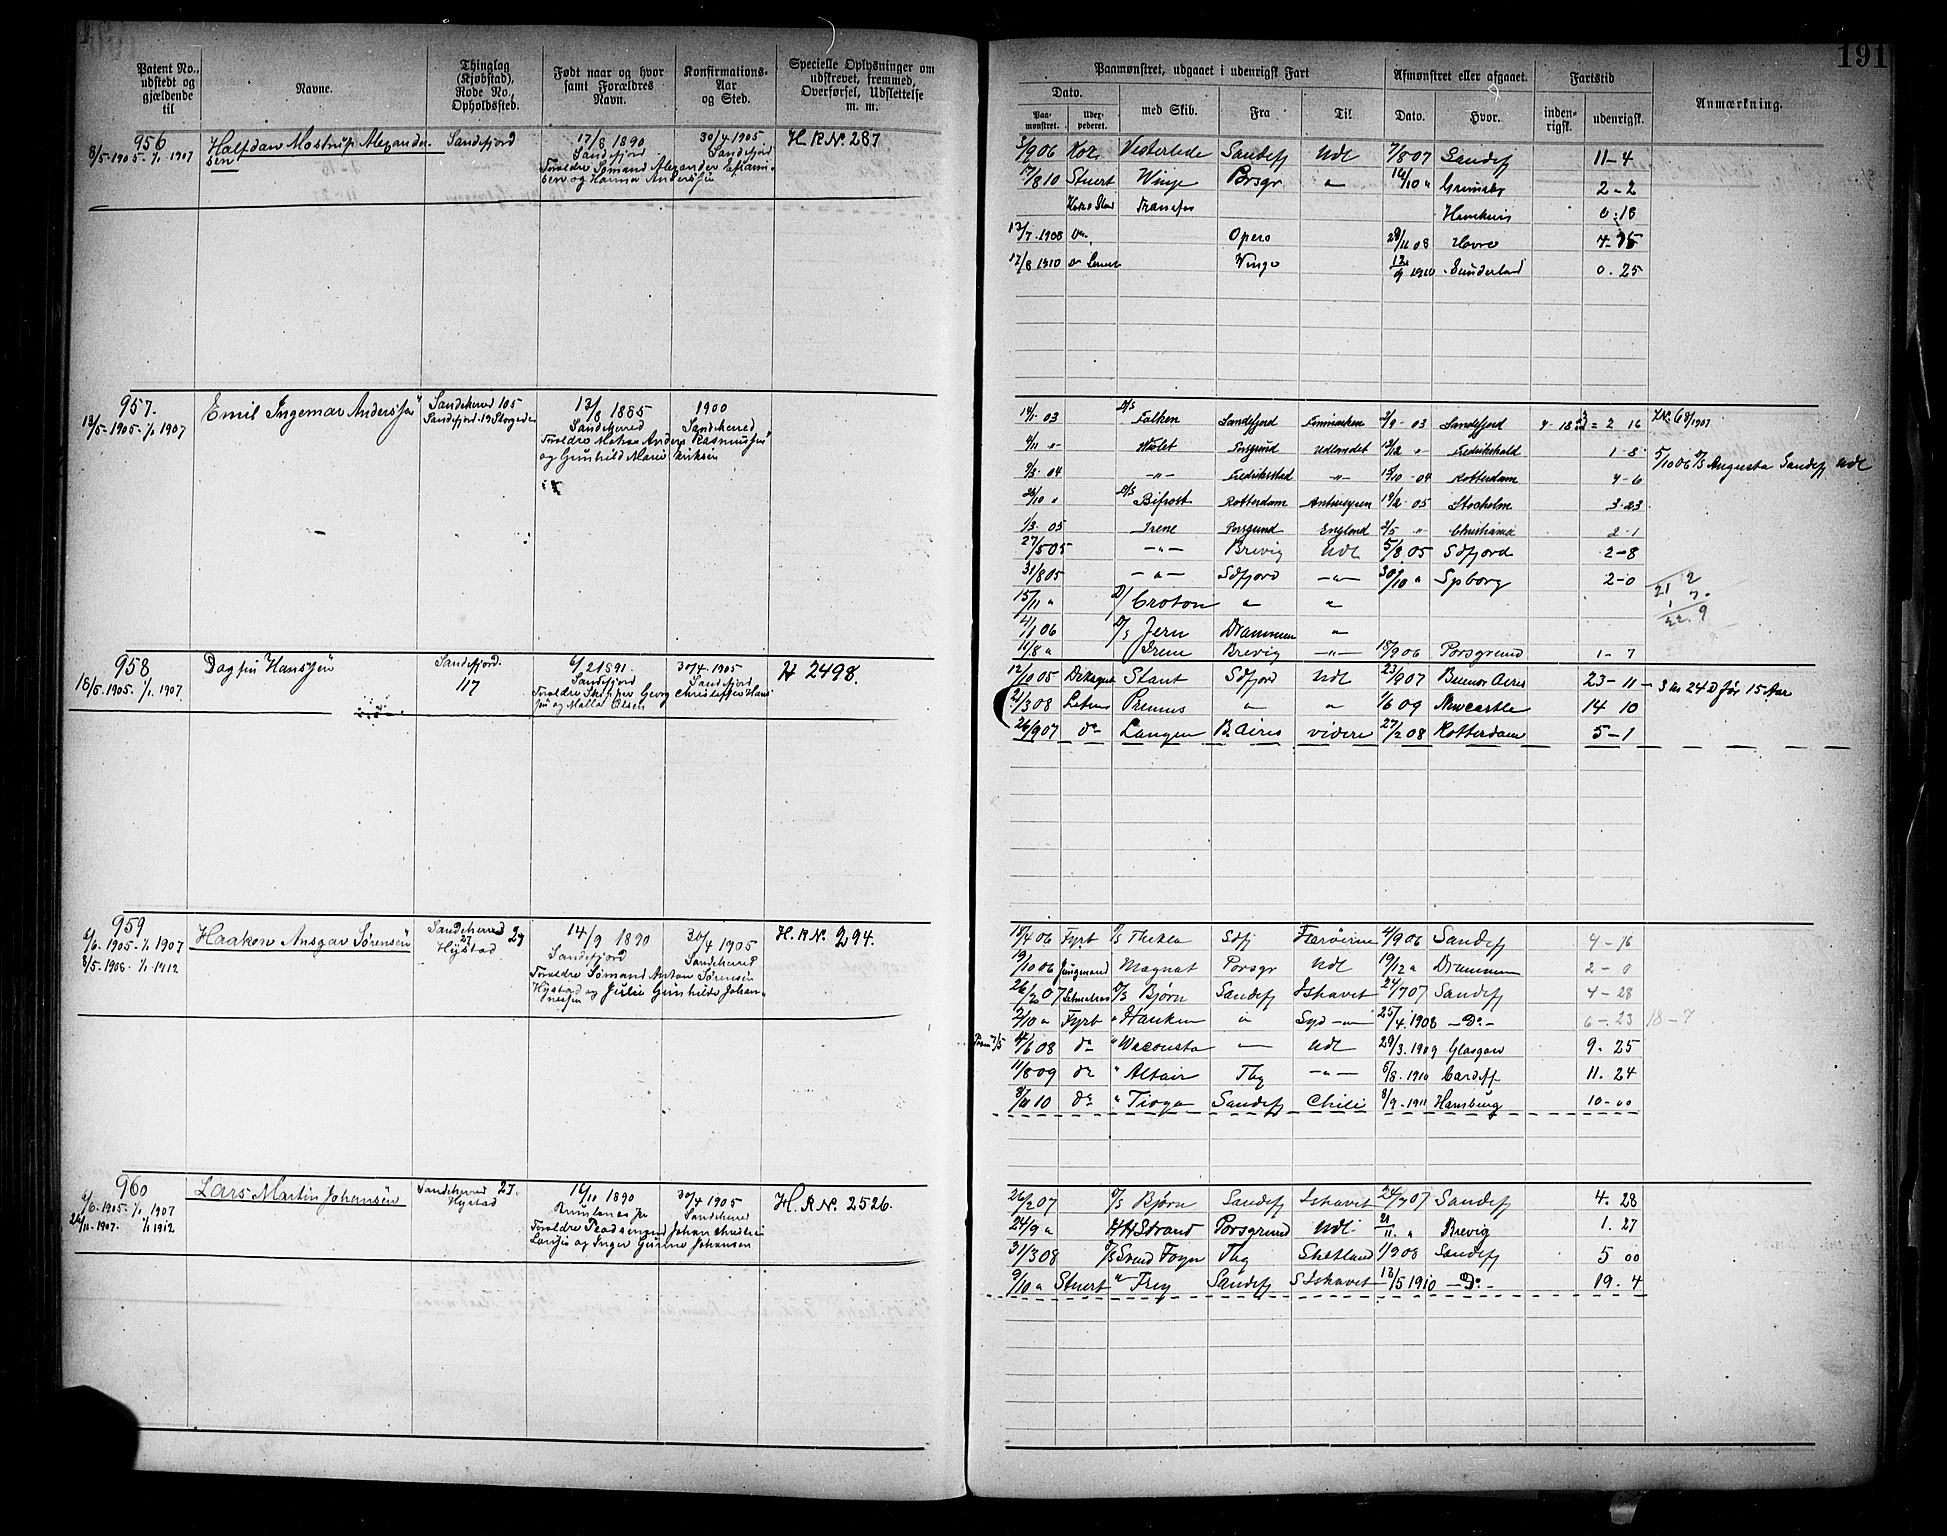 191
Patent No., udstedt og gjældende til | Navne. | Thinglag (Kjøbstad), Rode No., Opholdssted. | Født naar og hvor samt Forældres Navn. | Konfirmations-Aar og Sted. | Specielle Oplysninger om udskrevet, fremmed, Overførsel, Udslettelse m. m.
Paamønstret, udgaaet i udenrigsk Fart | Afmønstret eller afgaaet. | Fartstid | Anmærkning.
Dato. | med Skib. | Fra | Til. | Dato. | Hvor. | inden-rigsk. | udenrigsk.
Paa-mønstret.
956 | Halfdan Mostrup Alexander- | Sandefjord | 17/8 1890 | 30/4 1905 | H.R.No. 287
8/5-1905-1/1 1907 | sen | Sandefjord | Sandefjord
Foreldre Sømand Alexander
sen og Hanna Anderssen
/906 | Kok | Vesterlide | Sandefj | Udl | 7/8 07 | Sandefj | 11-4
17/8 10 | Stuert | Winge | Porsgr | " | Grimsby | 2-2
0.18
13/7.1908 | Do | Opero | 28/11 08 | Havre
17/8 1910 | Wingo | 12/9 1910 | Sunderland | 0.25
957. | Emil Ingemar Anderssen | Sandeherred 105 | 13/8 1885 | 1900
13/5-1905-1/1 1907 | Sandefjord | Sandeherred | Sandeherred
og Gunhild Marie Eriksen
14/1 03 | D/S Falken | Sandefjord | Finmarken | 2/9-03 | Sandefjord | 2 16
4/11 " | Violet | Porsgrund | Udlandet | 13/12 " | Fredrikshald | 1-8
9/3.04 | -"- | Fredrikstad | -"- | 15/10-04 | Rotterdam | 4-6
5/10 06 D/S Augusta Sandefj Udl
26/10 " | D/S Bifrost | Rotterdam | Antwerpen | 19/2-05 | Stockholm | 3.23
1/3.05 | Irene | Porsgrund | England | 2/5 " | Christiania | 2-1
27/5 05 | -"- | Brevig | Udl | 5/8 05 | Sdfjord | 2-8
31/8 05 | -"- | Sdfjord | -"- | 30/10 " | Spborg | 2-0
15/11 " | D/ Croton | " | "
/1 06 | D/S Jern | Drammen | "
/8 " | Irene | Brevig | -"- | 18/9 06 | Porsgrund | 1-7
958 | Dagfin Hanssen | Sandefjord. | 6/2 1891. | 30/4-1905 | H 2498.
18/5-1905-1/1 1907 | 117 | Sandefjord | Sandefjord
Foreldre Skipper Georg Christoffer Hans-
sen og Malla Olsen
12/10 05 | Dæksgut | Slant | Sdfjord | Udl | 23/9 07 | Buenos Aires | 23-11 | 3 kr 24 D før 15 Aar
2/3 08 | Letm | Primus | " | " | 1/6 09 | Newcastle | 14 10
26/9 07 | Do | Langen | B Aires | videre | 27/2 08 | Rotterdam | 5-1
959 | Haakon Ansgar Sørensen | Sandeherred 27 | 14/9 1890 | 30/4 1905 | H.R.No. 294.
2/6-1905-1/1 1907 | Hystad | Sandefjord | Sandeherred
8/5-1908-1/1-1912
Foreldre Sømand Anton Sørensen
Hystad og Julie Gunhilde Johan-
nessen
18/4 06 | Fyrb | D/S Thekla | Sdfj | Færøerne | 4/9 06 | Sandefj | 4-16
19/10 06 | Jungmand | Magnat | Porsgr | Udl | 19/12 " | Drammen | 2-0
26/2 07 | Letmatros | D/S Bjørn | Sandefj | Ishavet | 24/7 07 | Sandefj | 4-28
2/10 " | Fyrb | " Hauken | " | Syd -"- | 25/4.1908 | -Do- | 6-23 | 18-7
/6 08 | Do | " Waconsta | -"- | Udl | 29/3.1909 | Glasgow | 9.25
11/8 09 | Do | " Altair | Tbg | -"- | 5/8.1910 | Cardiff | 11.24
8/11 10 | Do | " Tioga | Sandefj | Chili | 8/9-1911 | Hamburg | 10-00
960 | Lars Martin Johansen | Sandeherred 27. | 14/11 1890 | 30/4 1905 | H.R.No. 2526.
2/6-1905-1/1 1907 | Hystad | Ramnes | Sandeherred
24/11-1907. 1/1 1912
Foreldre Pladsmand Johan Andreas
Larsen og Inger Gurine Johansen
26/2 07 | D/S Bjørn | Sandefj | Ishavet | 24/7 07 | Sandefj | 4.28
24/9 " | HH Strand | Porsgrund | Udl | 21/11. " | Brevig | 1.27
31/3 08 | D/S Svend Foyn | Tbg | Shetland | 1/9 08 | Sandefj | 5 00
9/10 " | Stuert | " Frey | Sandefj | S Ishavet | 13/5 1910 | -Do- | 19.4